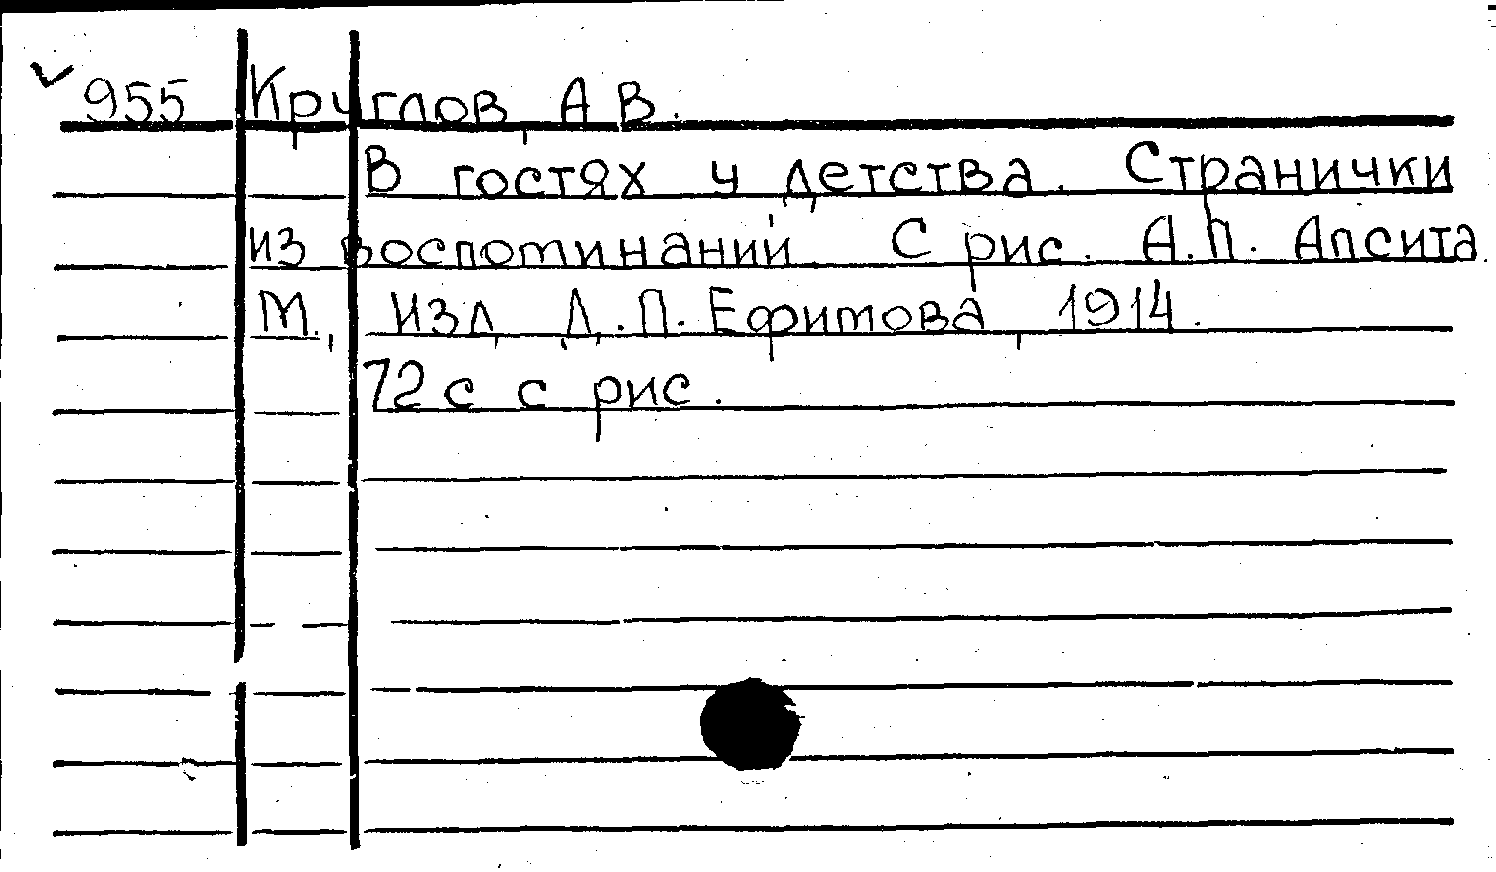 955 Круглов, А В.
В гостях у детства. Странички
из воспоминаний. С рис. А.П. Апсита.
М., Изд. Д.П. Ефимова, 1914.
72 с с рис.